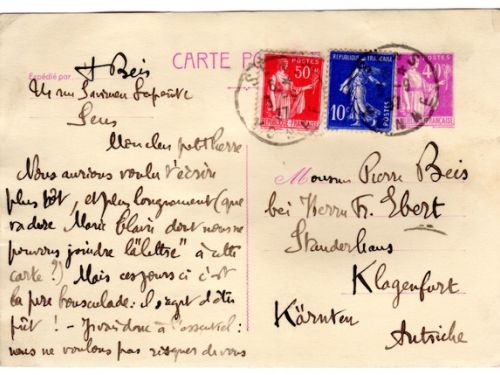 CARTE PO
Expédié par
Beis
rue Savinien Lapointe
Sens
Mon cher petit Pierre
Nous aurions voulu t'écrire
plus tôt, et plus longuement (que
va dire Marie Claire dont nous ne
pouvons joindre la "lettre" à cette
carte?) Mais ces jours ci c'est
la pire bousculade: il s'agit d'être
prêt! - J'y vais donc à l'essentiel:
nous ne voulons pas risquer de vous
50c
POSTES
REPUBLIQUE-FRANÇAISE
REPUBLIQUE FRANÇAISE
10c
POSTES
40c
FRANÇAISE
Monsieur Pierre Beis
bei Herrn Fr. Ebert
Standerhaus
Klagenfurt
Kärnten
Autriche